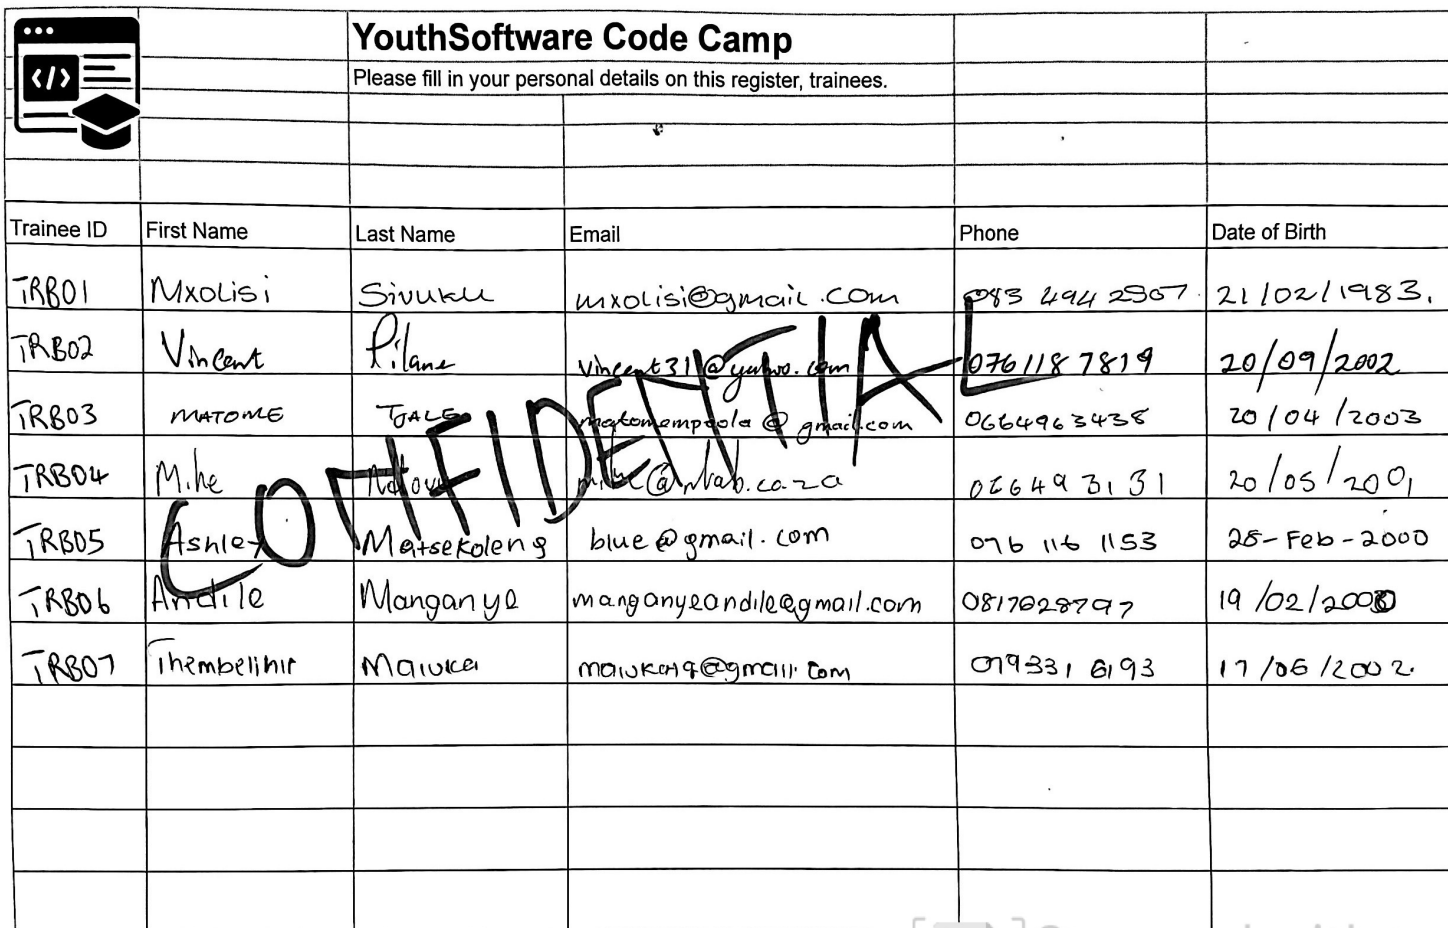 </>
YouthSoftware Code Camp
Please fill in your personal details on this register, trainees.
Trainee ID First Name Last Name Email Phone Date of Birth
TRB01 Mxolisi Sivuku mxolisi@gmail.com 083 494 2907 21/02/1983.
TRB02 Vincent Pilane vincent31@yahoo.com 076 118 7819 20/09/2002
TRB03 MATOME TJALE @gmail.com 0664963438 20/04/2003
TRB04 Mike 066493131 20/05/2001
TRB05 Ashley Matsekoleng blue@gmail.com 076 116 1153 28-Feb-2000
TRB06 Andile Manganye manganyeandile@gmail.com 0817628797 19/02/2000
TRB07 Thembelihle @gmail.com 079331 6193 17/06/2002.
COMFIDENTIAL